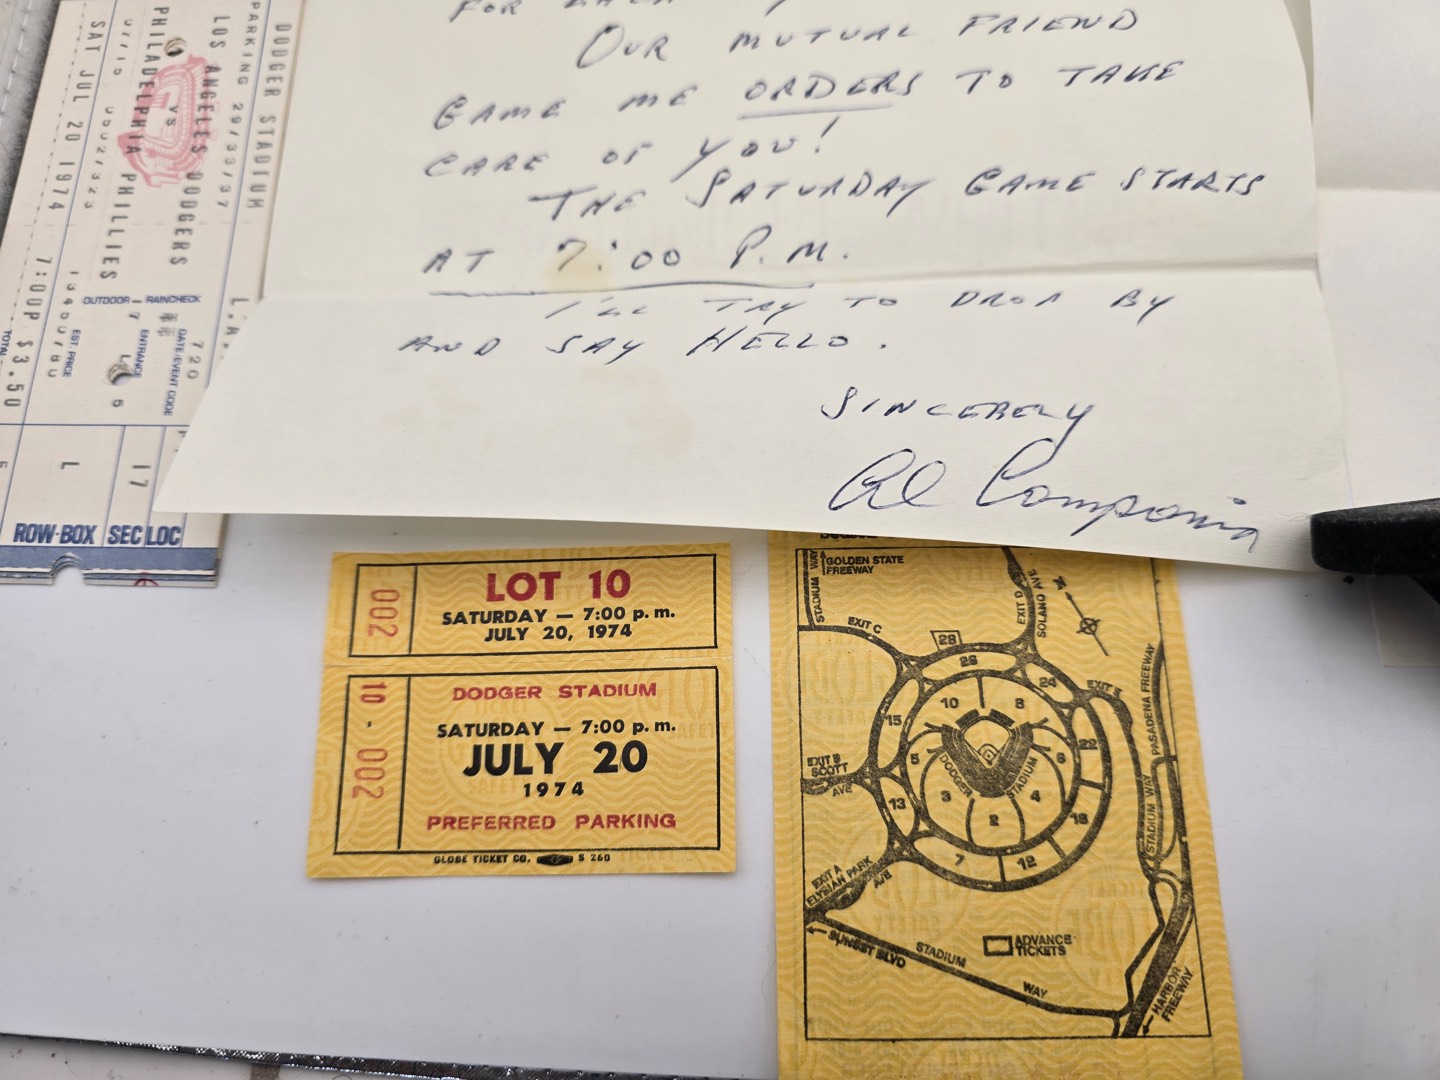 FOR EACH
OUR MUTUAL FRIEND
GAVE ME ORDERS TO TAKE
CARE OF YOU!
THE SATURDAY GAME STARTS
AT 7:00 P.M.
I'LL TRY TO DROP BY
AND SAY HELLO.
SINCERELY
Al Campanis
DODGER STADIUM
PARKING 29/33/37
LOS ANGELES DODGERS
VS
PHILADELPHIA PHILLIES
SAT JUL 20 1974
7:00P $3.50
L.A.
OUTDOOR - RAINCHECK
720
DATE/EVENT CODE
ENTRANCE
EST. PRICE
TOTAL
L
17
ROW-BOX SEC LOC
002
LOT 10
SATURDAY — 7:00 p.m.
JULY 20, 1974
10 - 002
DODGER STADIUM
SATURDAY — 7:00 p.m.
JULY 20
1974
PREFERRED PARKING
GLOBE TICKET CO. S 260
STADIUM WAY
GOLDEN STATE
FREEWAY
EXIT D
SOLANO AVE
EXIT C
28
26
24
EXIT E
PASADENA FREEWAY
10
8
15
22
EXIT B
SCOTT
AVE
5
6
DODGER STADIUM
3
4
13
2
18
7
12
STADIUM WAY
EXIT A
ELYSIAN PARK
AVE
SUNSET BLVD
STADIUM WAY
ADVANCE
TICKETS
HARBOR
FREEWAY